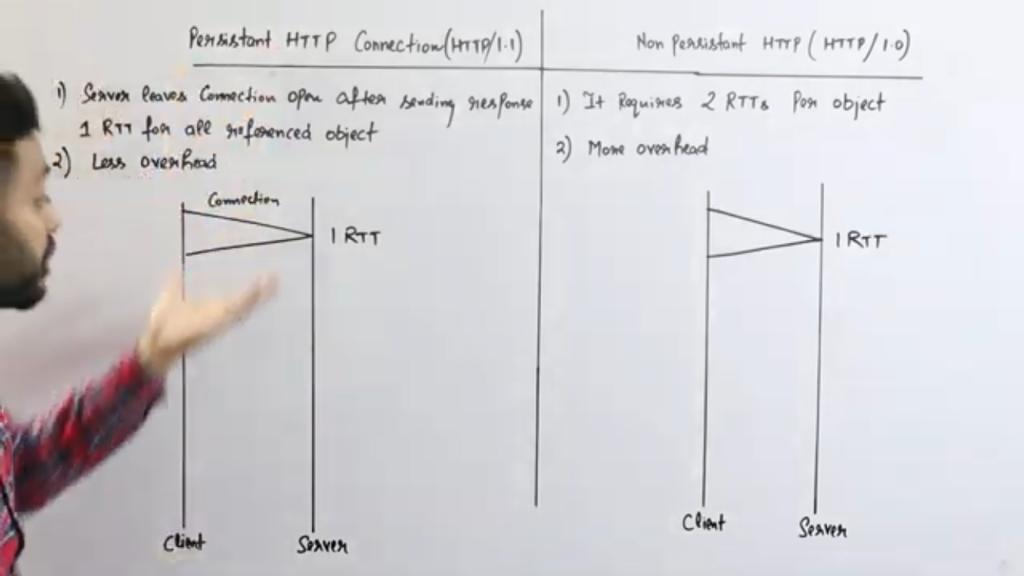 Persistant HTTP Connection (HTTP/1.1)
1) Server leaves Connection open after sending response
1 RTT for all referenced object
2) Less overhead
Connection
1 RTT
Client
Server
Non Persistant HTTP (HTTP/1.0)
1) It Requires 2 RTTs Per object
2) More overhead
1 RTT
Client
Server